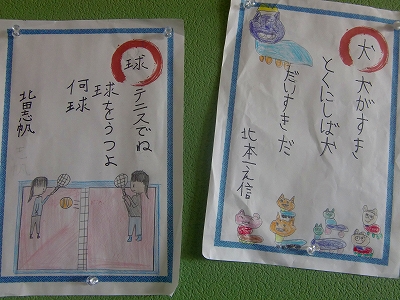 球 テニスでね
球をうつよ
何球
北田志帆
犬 犬がすき
とくにしば犬
だいすきだ
北本一信